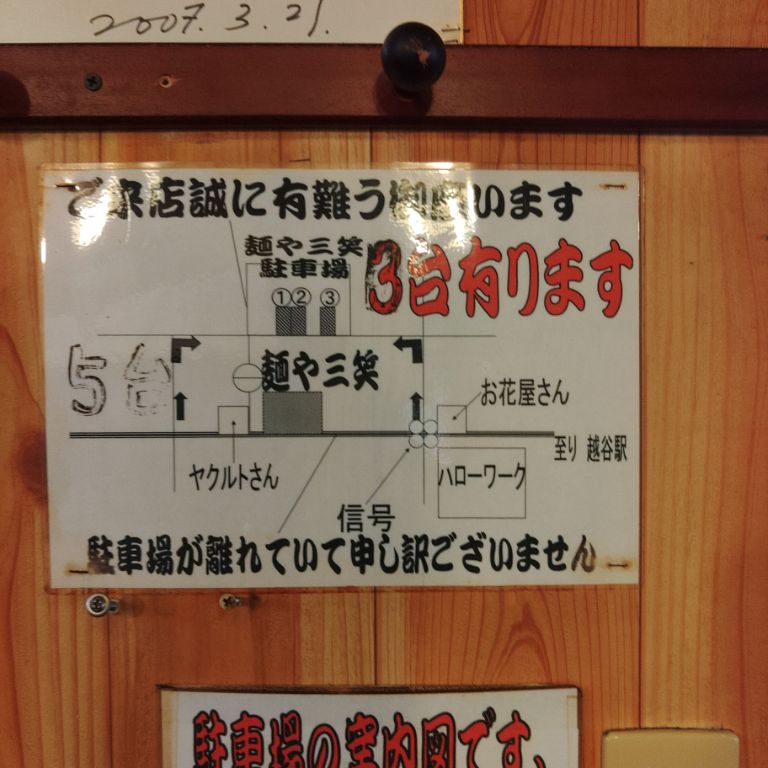 2007. 3. 21.
ご来店誠に有難う御座います
麺や三笑
駐車場
3台有ります
①② ③
5台
麺や三笑
お花屋さん
至り 越谷駅
ヤクルトさん
ハローワーク
信号
駐車場が離れていて申し訳ございません
駐車場の案内図です。